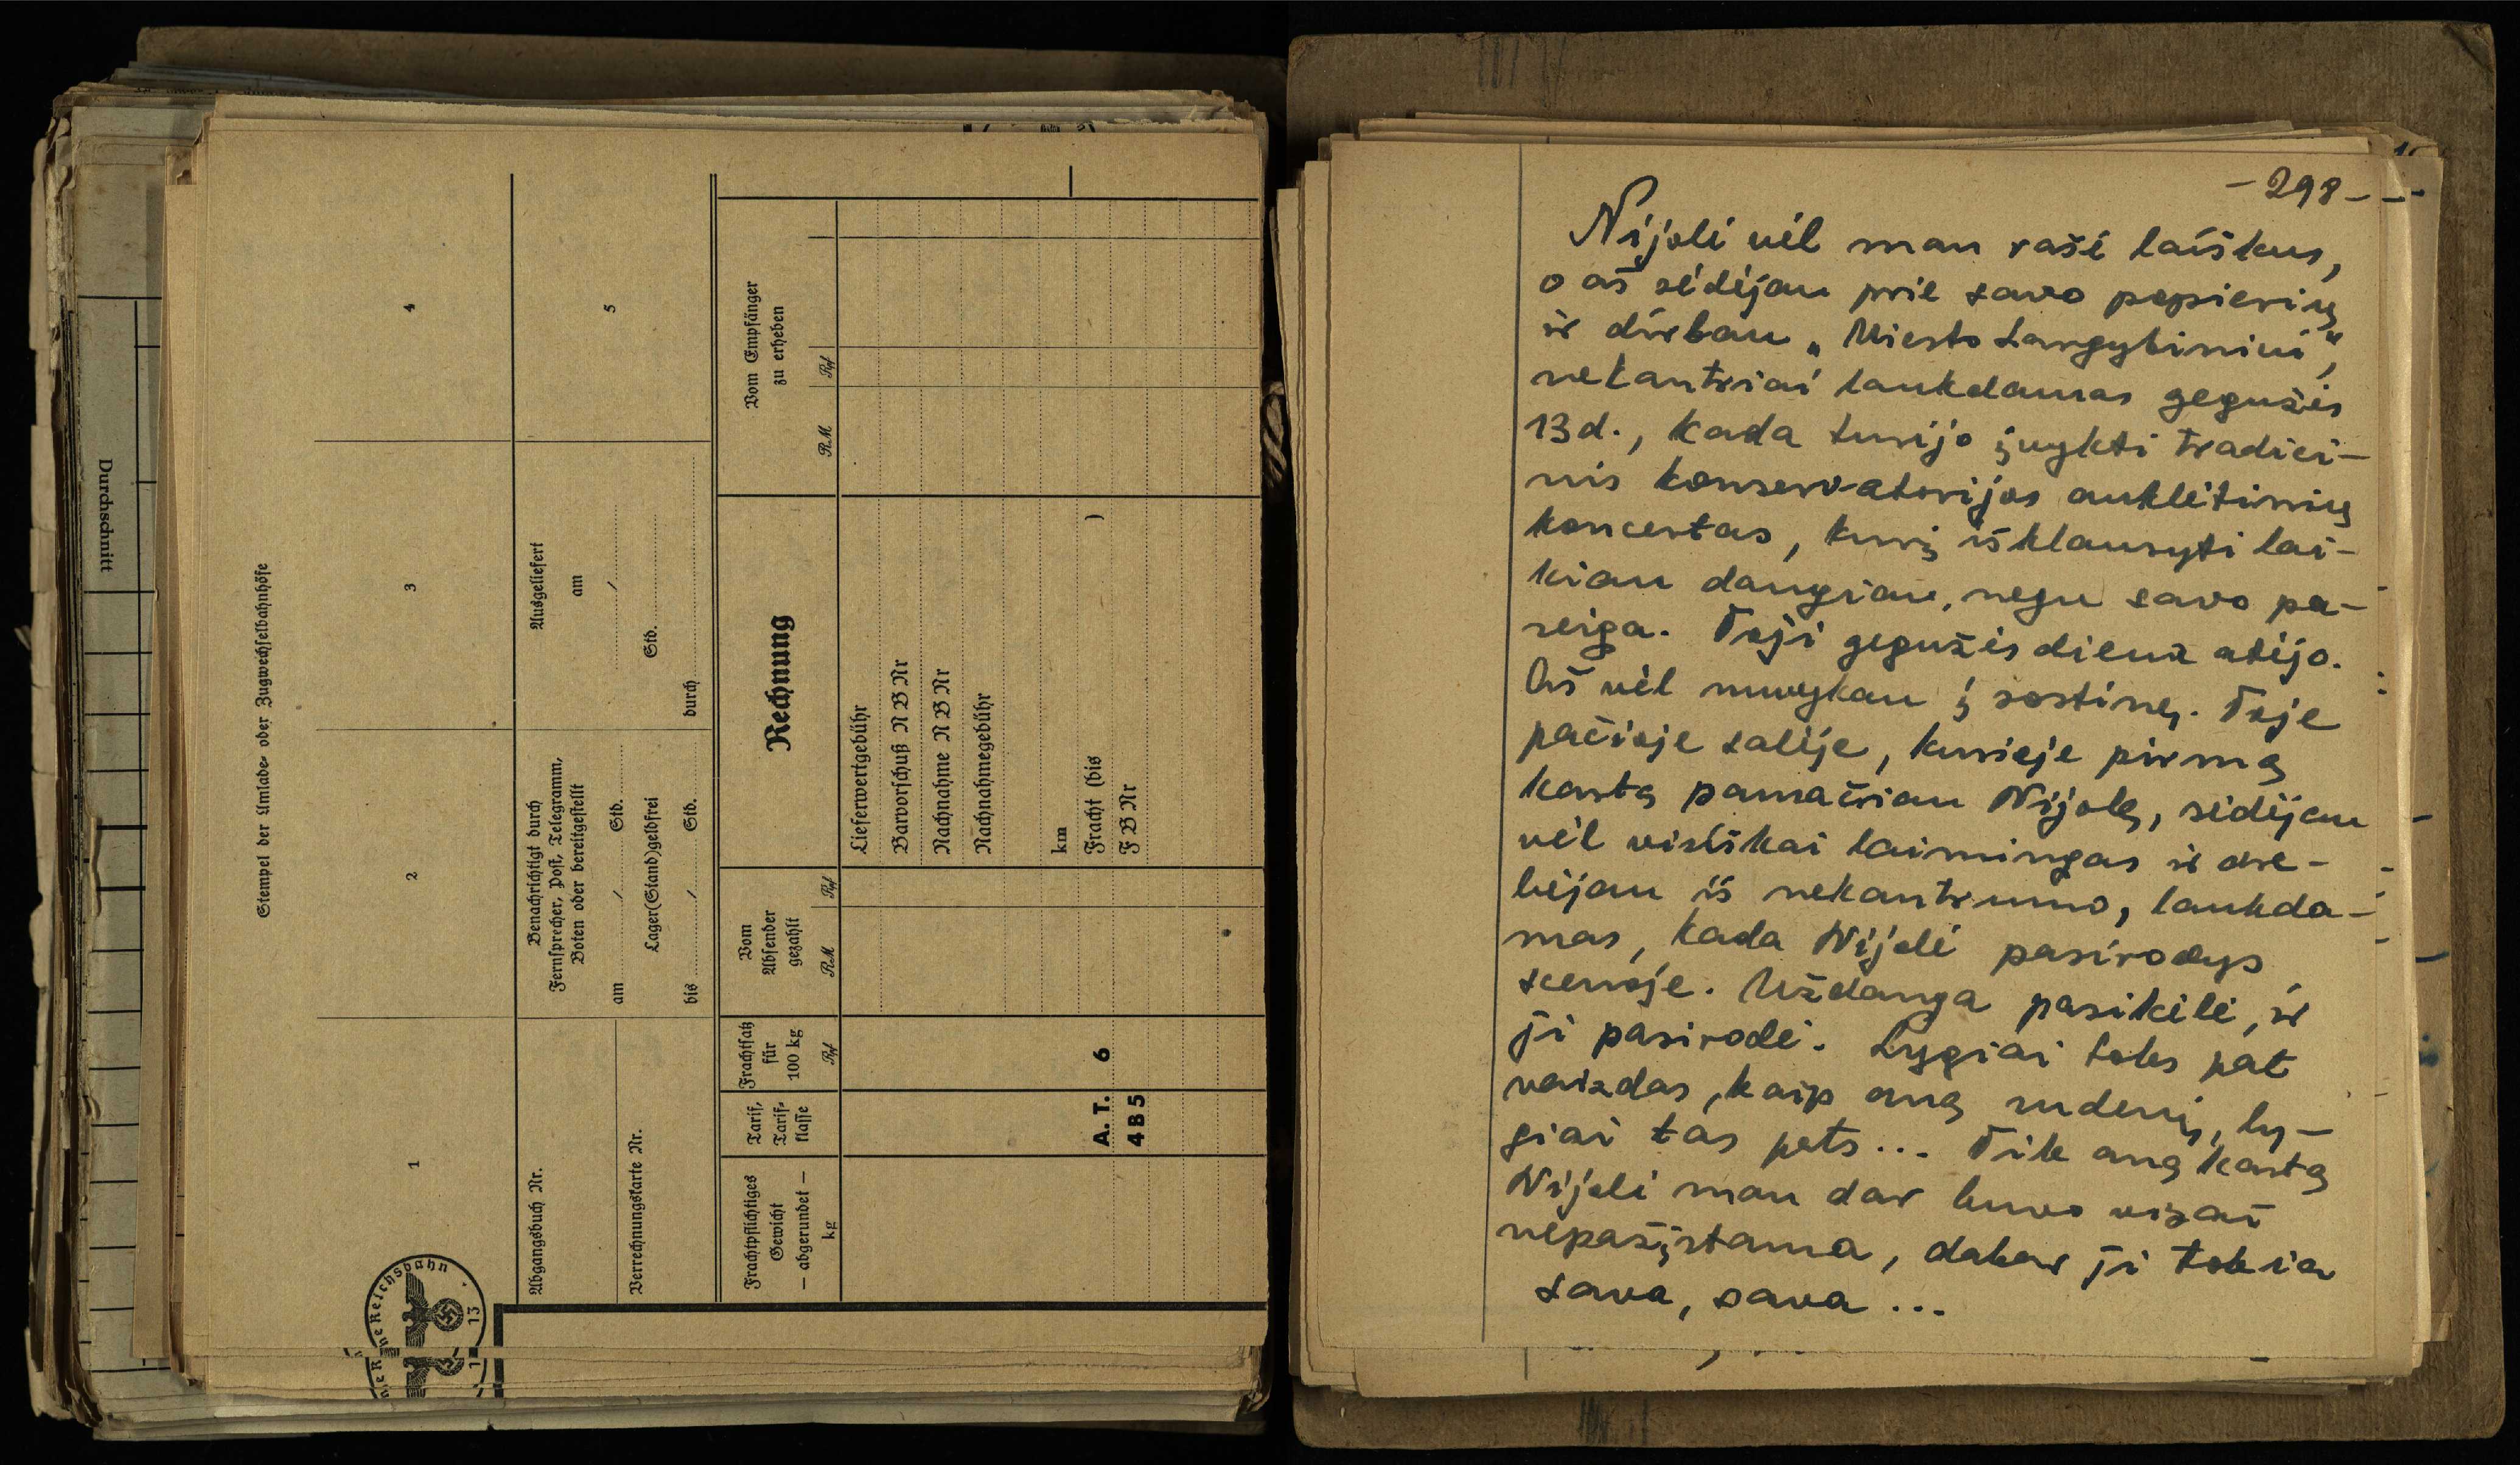 Durchschnitt
Stempel der Umlade- oder Zugwechselbahnhöfe
1
2
3
4
Abgangsbuch Nr.
Verrechnungskarte Nr.
Benachrichtigt durch
Fernsprecher, Post, Telegramm,
Boten oder bereitgestellt
am / Std.
Lager(Stand)geldfrei
bis / Std.
Ausgeliefert
am
/
Std.
durch
5
Frachtpflichtiges
Gewicht
— abgerundet —
kg
Tarif,
Tarif-
klasse
Frachtsatz
für
100 kg
Rpf
Vom
Absender
gezahlt
RM Rpf
Rechnung
Vom Empfänger
zu erheben
RM Rpf
Lieferwertgebühr
Barvorschuß N B Nr
Nachnahme N B Nr
Nachnahmegebühr
km
A. T. 6 Fracht (bis )
4 B 5 F B Nr
ne Reichsbahn
13
- 298 -
Nijolė vėl man rašė laiškus,
o aš sėdėjau prie savo popierių
ir dirbau „Miesto Sargybiniui",
nekantriai laukdamas gegužės
13 d., kada turėjo įvykti tradici-
nis konservatorijos auklėtinių
koncertas, kurį išklausyti lai-
kiau daugiau, negu savo pa-
reiga. Toji gegužės diena atėjo.
Aš vėl nuvykau į sostinę. Toje
pačioje salėje, kurioje pirmą
kartą pamačiau Nijolę, sėdėjau
vėl visiškai laimingas ir dre-
bėjau iš nekantrumo, laukda-
mas, kada Nijolė pasirodys
scenoje. Uždanga pasikėlė, ir
ji pasirodė. Lygiai toks pat
vaizdas, kaip aną rudenį, ly-
giai tas pats... Tik aną kartą
Nijolė man dar buvo visai
nepažįstama, dabar ji tokia
sava, sava...